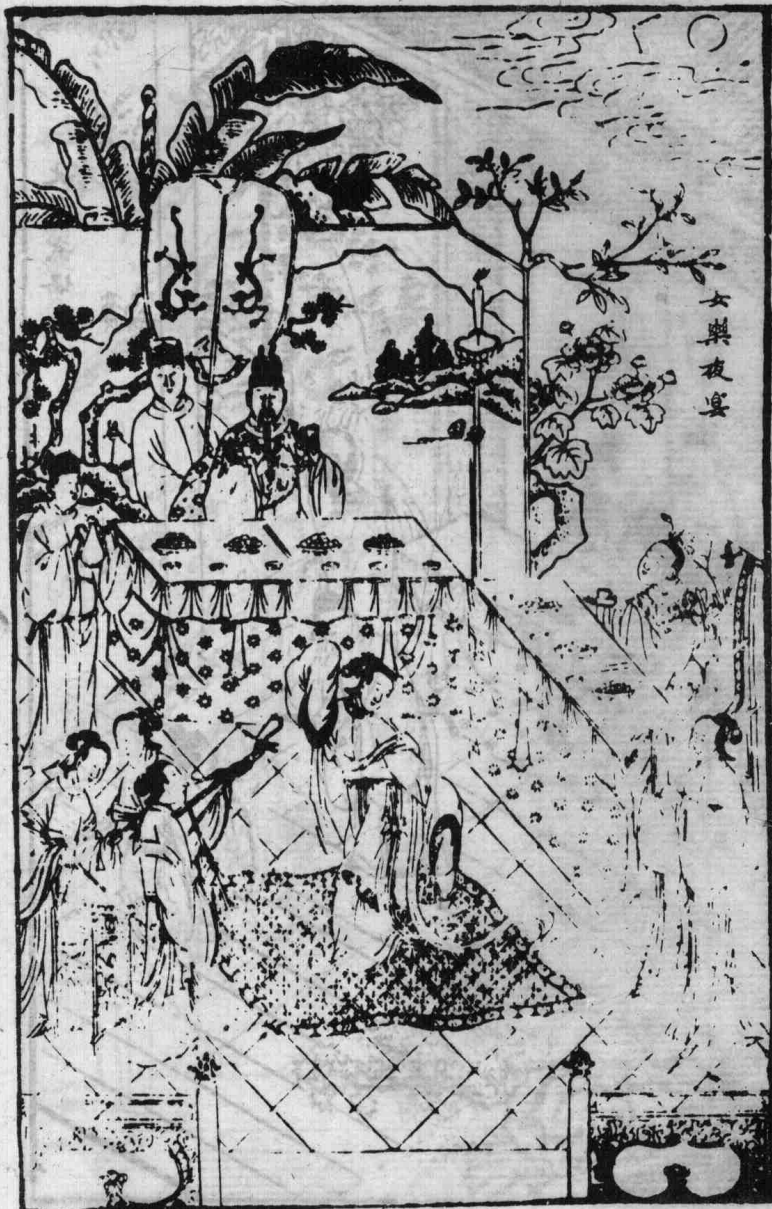 女樂夜宴